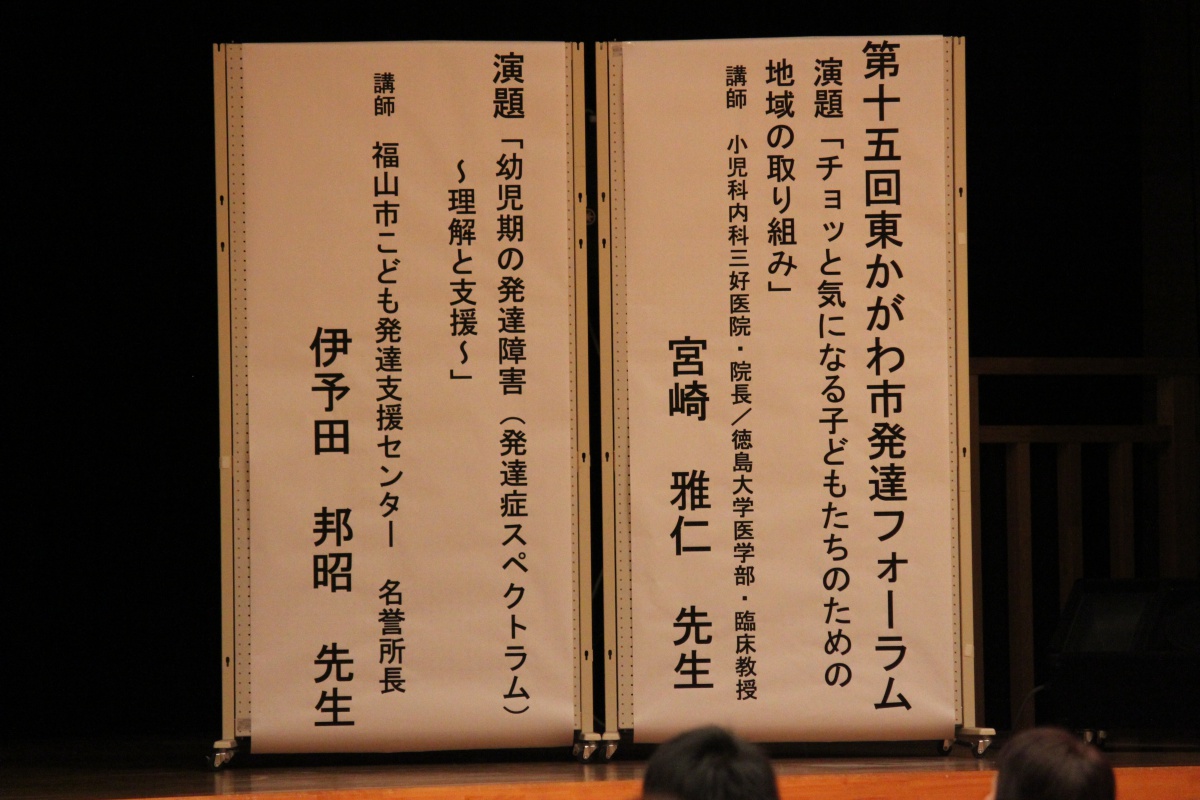 第十五回東かがわ市発達フォーラム
演題「チョッと気になる子どもたちのための
地域の取り組み」
講師　小児科内科三好医院・院長／徳島大学医学部・臨床教授
宮崎　雅仁　先生
演題「幼児期の発達障害（発達症スペクトラム）
～理解と支援～」
講師　福山市こども発達支援センター　名誉所長
伊予田　邦昭　先生